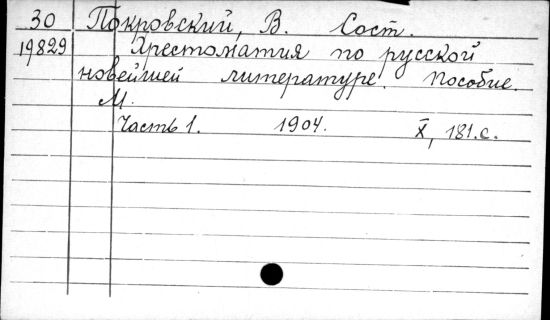 30 Покровский, В. Сост.
19829 Хрестоматия по русской
новейшей литературе. Пособие.
М.
Часть 1. 1904. X, 181.с.